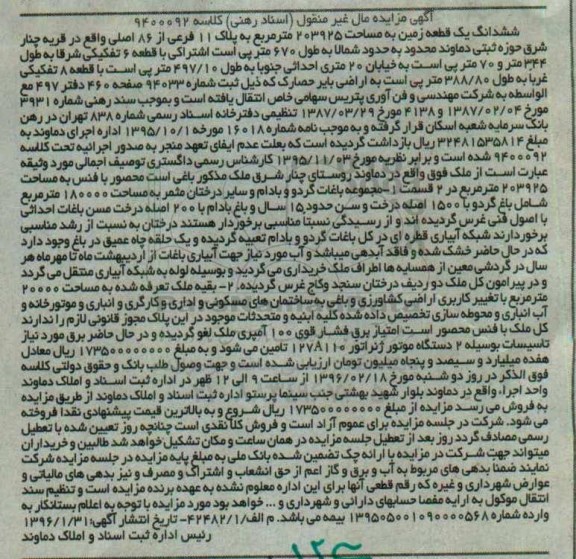 آگهی مزایده مال غیر منقول (اسناد رهنی) کلاسه ۹۴۰۰۰۹۲
ششدانگ یک قطعه زمین به مساحت ۲۰۳۹۲۵ مترمربع به پلاک ۱۱ فرعی از ۸۶ اصلی واقع در قریه چنار
شرق حوزه ثبتی دماوند محدود به حدود شمالا به طول ۶۷۰ متر پی است اشتراکی با قطعه ۶ تفکیکی شرقا به طول
۳۴۴ متر و ۷۰ متر پی است به خیابان ۲۰ متری احداثی جنوبا به طول ۴۹۷/۱۰ متر پی است با قطعه ۸ تفکیکی
غربا به طول ۳۸۸/۸۰ متر پی است به اراضی بایر حصارک که ذیل ثبت شماره ۹۴۰۳۳ صفحه ۴۶۰ دفتر ۴۹۷ مع
الواسطه به شرکت مهندسی و فن آوری پتریس سهامی خاص انتقال یافته است و بموجب سند رهنی شماره ۳۹۳۱
مورخ ۱۳۸۷/۰۲/۰۴ و ۴۱۳۸ مورخ ۱۳۸۷/۰۳/۲۹ تنظیمی دفترخانه اسناد رسمی شماره ۸۳۸ تهران در رهن
بانک سرمایه شعبه اسکان قرار گرفته و به موجب نامه شماره ۱۶۰۱۸ مورخه ۱۳۹۵/۱۰/۱ اداره اجرای دماوند به
مبلغ ۳۲۴۸۱۵۳۵۸۱۴ ریال بازداشت گردیده است که بعلت عدم ایفای تعهد منجر به صدور اجرائیه تحت کلاسه
۹۴۰۰۰۹۲ شده است و برابر نظریه مورخ ۱۳۹۵/۱۱/۰۳ کارشناس رسمی دادگستری توصیف اجمالی مورد وثیقه
عبارت است از ملک فوق واقع در دماوند روستای چنار شرق ملک مذکور باغی است محصور با فنس به مساحت
۲۰۳۹۲۵ مترمربع در ۲ قسمت ۱-مجموعه باغات گردو و بادام و سایر درختان مثمر به مساحت ۱۸۰۰۰۰ مترمربع
شامل باغ گردو با ۱۵۰۰ اصله درخت و سن حدود ۱۵ سال و باغ بادام با ۲۰۰ اصله درخت مسن باغات احداثی
با اصول فنی غرس گردیده اند و از رسیدگی نسبتا مناسبی برخوردار هستند درختان به نسبت از رشد مناسبی
برخوردارند شبکه آبیاری قطره ای در کل باغات گردو و بادام تعبیه گردیده و یک حلقه چاه عمیق در باغ وجود دارد
که در حال حاضر خشک شده و فاقد آبدهی میباشد و آب مورد نیاز جهت آبیاری باغات از اردیبهشت ماه تا مهرماه هر
سال در گردشی معین از همسایه ها اطراف ملک خریداری می گردید و بوسیله لوله به شبکه آبیاری منتقل می گردد
و در پیرامون کل ملک دو ردیف درختان سنجد وکاج غرس گردیده. ۲- بقیه ملک تعرفه شده به مساحت ۲۰۰۰۰
مترمربع با تغییر کاربری اراضی کشاورزی و باغی به ساختمان های مسکونی و اداری و کارگری و انباری و موتورخانه و
آب انباری و محوطه سازی تخصیص داده شده کلیه ابنیه و متحدثات موجود در این پلاک مجوز قانونی لازم را ندارند
کل ملک با فنس محصور است امتیاز برق فشار قوی ۱۰۰ آمپری ملک لغو گردیده و در حال حاضر برق مورد نیاز
تاسیسات بوسیله ۲ دستگاه موتور ژنراتور ۱۲۷۸۱۱۰ تامین می شود و به مبلغ ۱۷۳۵۰۰۰۰۰۰۰۰ ریال معادل
هفده میلیارد و سیصد و پنجاه میلیون تومان ارزیابی شده است و جهت وصول طلب بانک و حقوق دولتی کلاسه
فوق الذکر در روز دو شنبه مورخ ۱۳۹۶/۰۲/۱۸ از ساعت ۹ الی ۱۲ ظهر در اداره ثبت اسناد و املاک دماوند
واحد اجرا، واقع در دماوند بلوار شهید بهشتی جنب سینما پرستو اداره ثبت اسناد و املاک دماوند از طریق مزایده
به فروش می رسد مزایده از مبلغ ۱۷۳۵۰۰۰۰۰۰۰۰ ریال شروع و به بالاترین قیمت پیشنهادی نقدا فروخته
می شود. شرکت در جلسه مزایده برای عموم آزاد است و فروش کلا نقدی است چنانچه روز تعیین شده با تعطیل
رسمی مصادف گردد روز بعد از تعطیل جلسه مزایده در همان ساعت و مکان تشکیل خواهد شد طالبین و خریداران
میتواند جهت شرکت در مزایده با ارائه چک تضمین شده بانک ملی به مبلغ پایه مزایده در جلسه مزایده شرکت
نمایند ضمنا بدهی های مربوط به آب و برق و گاز اعم از حق انشعاب و اشتراک و مصرف و نیز بدهی های مالیاتی و
عوارض شهرداری و غیره که رقم قطعی آنها برای این اداره معلوم نشده به عهده برنده مزایده است و تنظیم سند
انتقال موکول به ارایه مفصا حسابهای دارائی و شهرداری و ... خواهد بود مورد مزایده با توجه به اعلام بستانکار به
وارده شماره ۱۳۹۵۰۵۰۰۱۰۹۰۰۰۰۵۶۸ بیمه می باشد. م الف/۴۲۴۸۲/۱- تاریخ انتشار آگهی: ۱۳۹۶/۱/۳۱
رئیس اداره ثبت اسناد و املاک دماوند